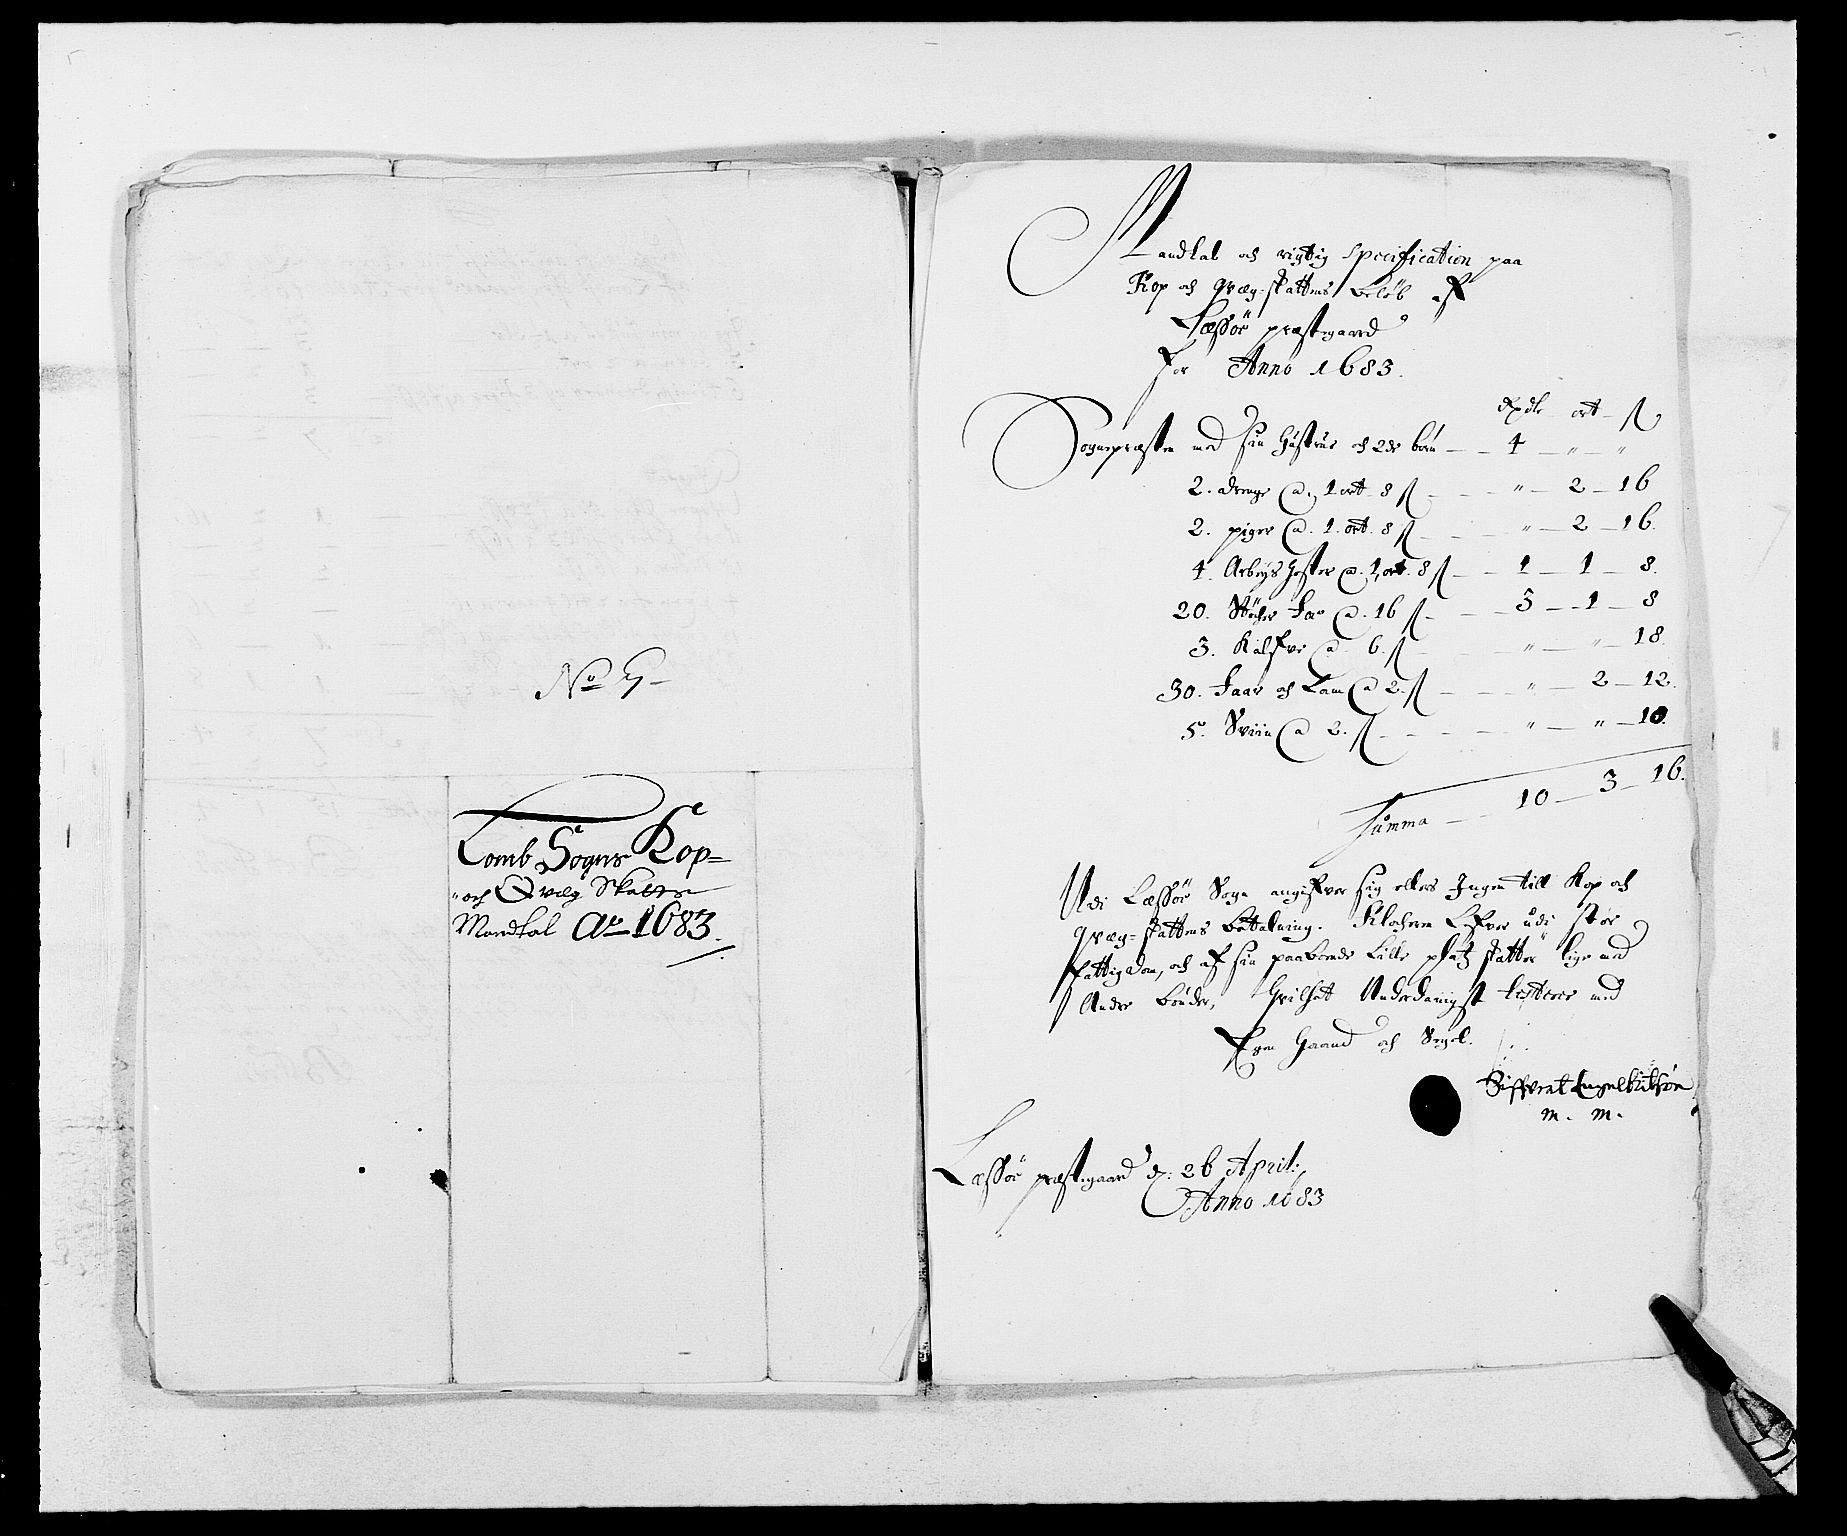 No 9
Lomb Sogns Kop=
och Qvæg Skatts
Mandtal Ao 1683.
Mandtal och rigtig Specification paa
Kop och qvæg-skattens beløb af
Læssöe præstegaard
for Anno 1683.
Rxdlr ort ß
Sognepræsten med sin Hüstrue och 2de börn — 4 — " — "
2. drenge a. 1 ort 8 ß — " — 2 — 16
2. piger a. 1. ort. 8 ß — " — 2 — 16.
4. Arbeyds hester a. 1 ort. 8 ß — 1 — 1 — 8.
20. Stöcher Fæe a. 16 ß — 3 — 1 — 8
3. Kalfve a 6. ß — " — " — 18.
30. Faar och Lam a 2. ß — " — 2 — 12.
5. Sviin a 2. ß — " — " — 10.
Summa — 10 — 3 — 16.
Udi Læssöe Sogn angifver sig ellers Ingen till Kop och
qvæg-skattens betalning. Klocheren lefver udi stor
fattigdom, och af sin paaboende lille platz skatter lige med
Andre bönder, hvilchet Underdanigst testerer med
Egen Haand och Segel.
Siffvert Engelbritsön
m. m.
Læssöe præstegaard d. 26 April:
Anno 1683